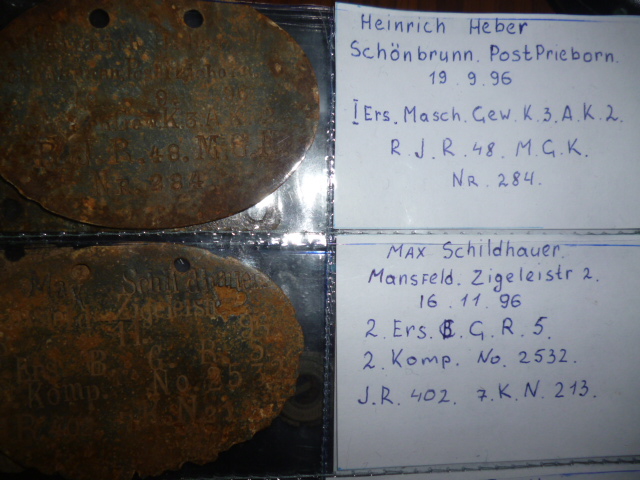 R. J. R. 48. M. G. K
Nr. 284
Heinrich Heber
Schönbrunn. Post Prieborn.
19.9.96
I Ers. Masch. Gew. K. 3. A. K. 2.
R. J. R. 48. M. G. K.
Nr. 284.
Max Schildhauer
Zigeleistr
Ers. B. G. R. 5.
Komp. No. 253
Max Schildhauer.
Mansfeld. Zigeleistr 2.
16.11.96
2. Ers. B. G. R. 5.
2. Komp. No. 2532.
J. R. 402. 7. K. N. 213.